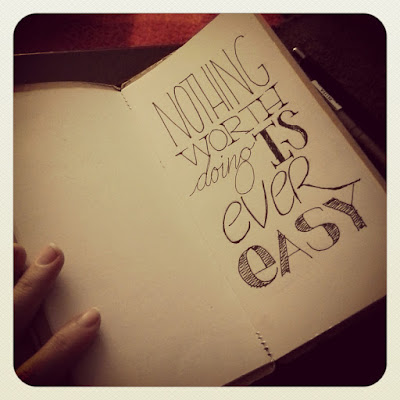 NOTHING
WORTH
doing IS
ever
eASY